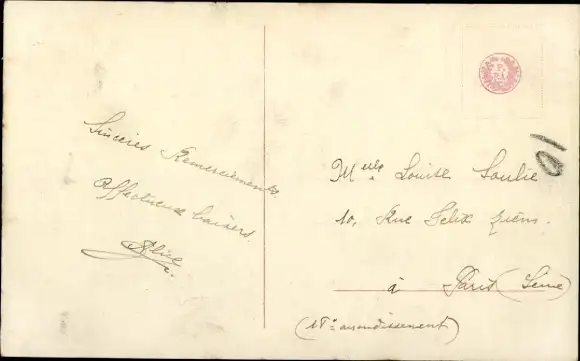 Sincères Remerciements.
affectueux baisers.
Alice
Melle Louise Soulié
10, Rue Felix Ziem.
à Paris (Seine)
(18e arrondissement)
10